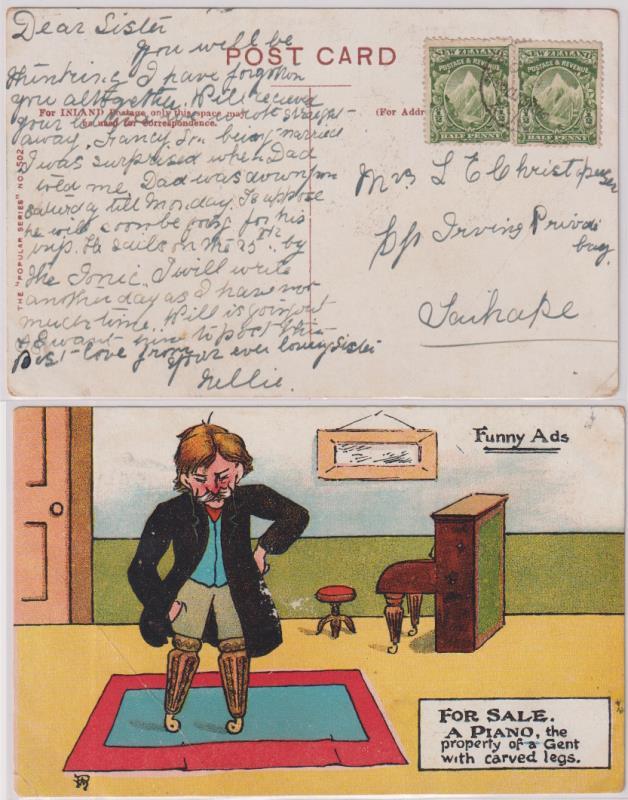 Dear Sister
You will be
thinking I have forgotton
you altogether. Will recieved
your
away. Fancy being married
I was surprised when Dad
told me. Dad was down from
Saturday till Monday. I suppose
he will soon be going for his
trip. He sails on the 25th by
the Ionic. I will write
another day as I have not
much time. Will is going out
& I want him to post this
Best love from
Your ever loving Sister
Nellie.
POST CARD
For INLAND Postage only this space may
be used for Correspondence.
(For Addre
THE "POPULAR SERIES" No. 1502
NEW ZEALAND
POSTAGE & REVENUE
HALF PENNY
NEW ZEALAND
POSTAGE & REVENUE
HALF PENNY
Mrs L E Christ
C/o Irving Private
bag
Taihape
Funny Ads
FOR SALE.
A PIANO, the
property of a Gent
with carved legs.